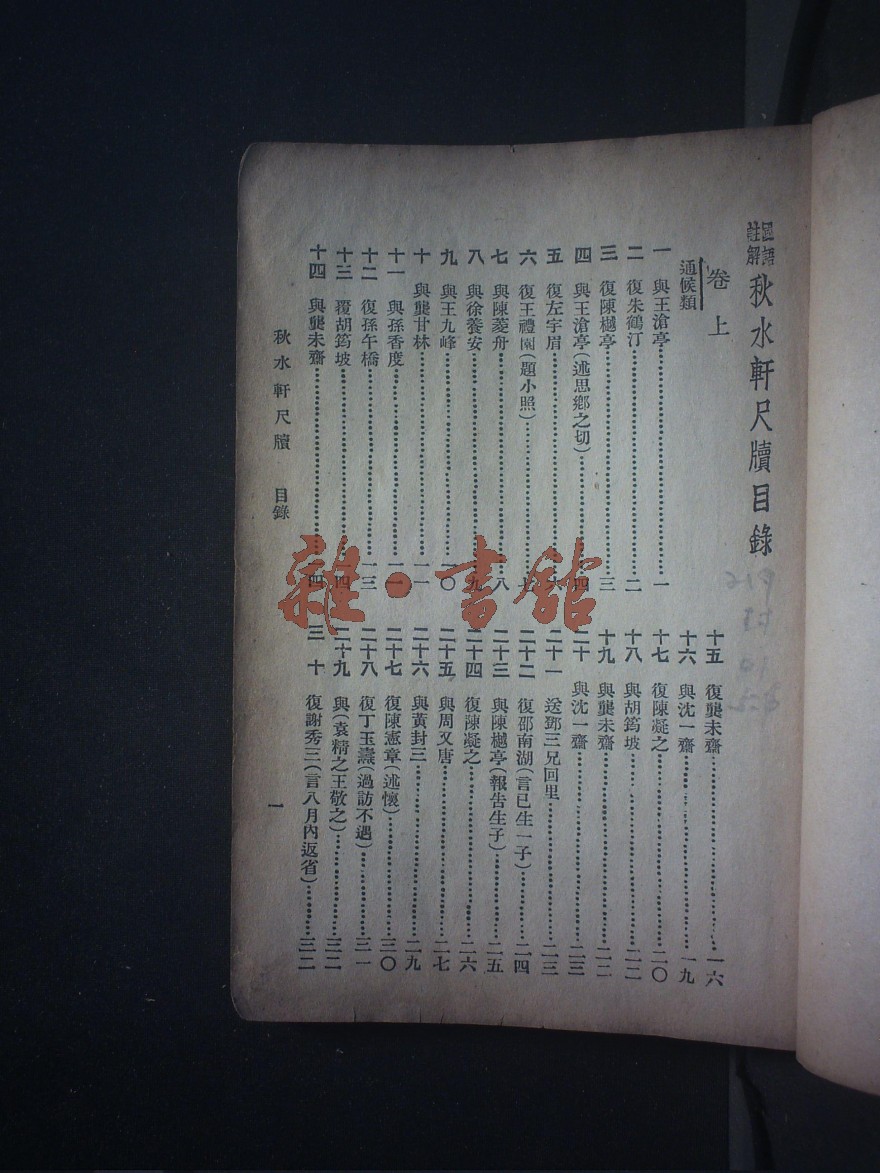 國語註解 秋水軒尺牘目錄
卷上
通候類
一 與王滄亭……一
二 復朱鶴汀……二
三 復陳樾亭……三
四 與王滄亭(述思鄉之切)……四
五 復左宇眉……六
六 復王禮園(題小照)……七
七 與陳菱舟……八
八 與徐養安……九
九 與王九峰……一〇
十 與龔甘林……一一
十一 與孫香度……一一
十二 復孫午橋……一三
十三 覆胡筠坡……一四
十四 與龔未齋……一四
十五 復龔未齋……一六
十六 與沈一齋……一九
十七 復陳凝之……二〇
十八 與胡筠坡……二二
十九 與龔未齋……二二
二十 與沈一齋……二三
二十一 送鄧三兄回里……二三
二十二 復邵南湖(言已生一子)……二四
二十三 與陳樾亭(報告生子)……二五
二十四 復陳凝之……二六
二十五 與周又唐……二七
二十六 與黃封三……二九
二十七 復陳憲章(述懷)……三〇
二十八 復丁玉燾(過訪不遇)……三一
二十九 與(袁精之王敬之)……三二
三十 復謝秀三(言八月內返省)……三二
秋水軒尺牘 目錄
一
雜·書館